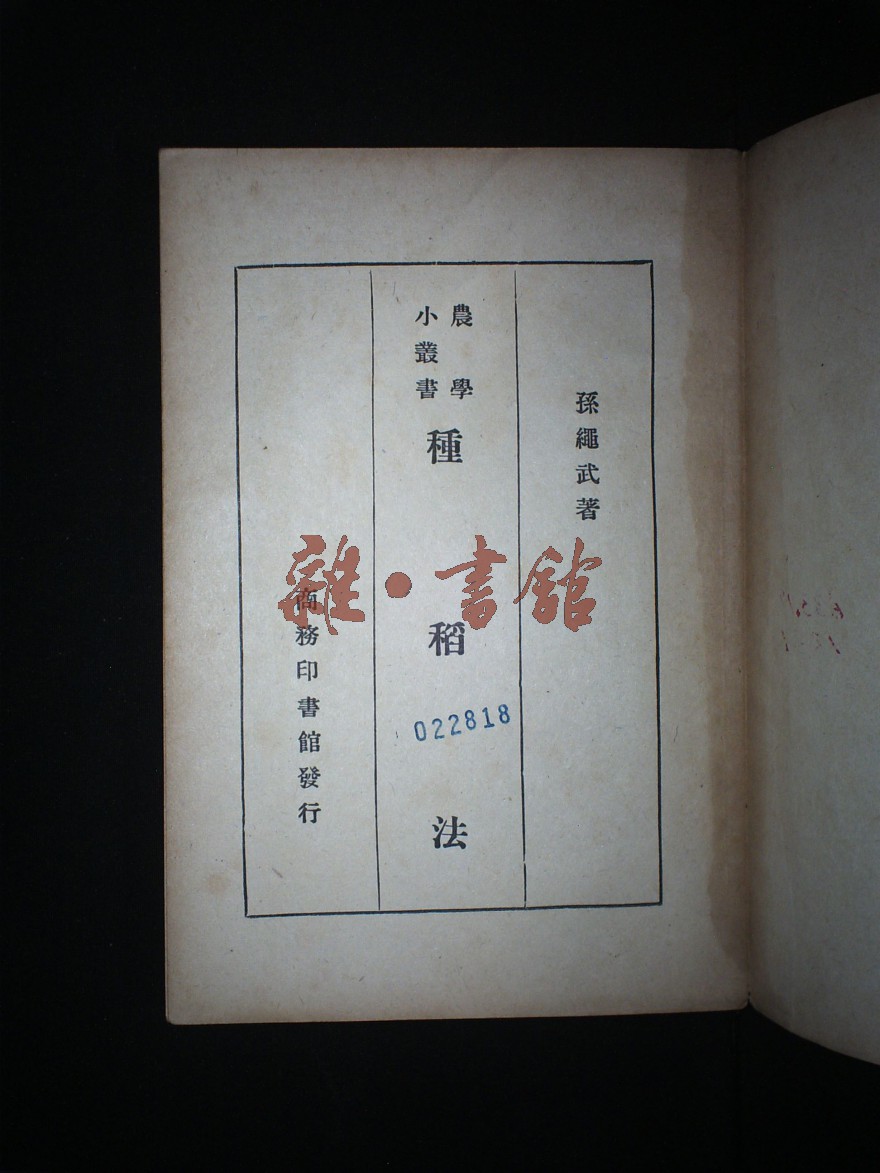 孫繩武著
農學
小叢書
種稻法
022818
商務印書館發行
雜·書館